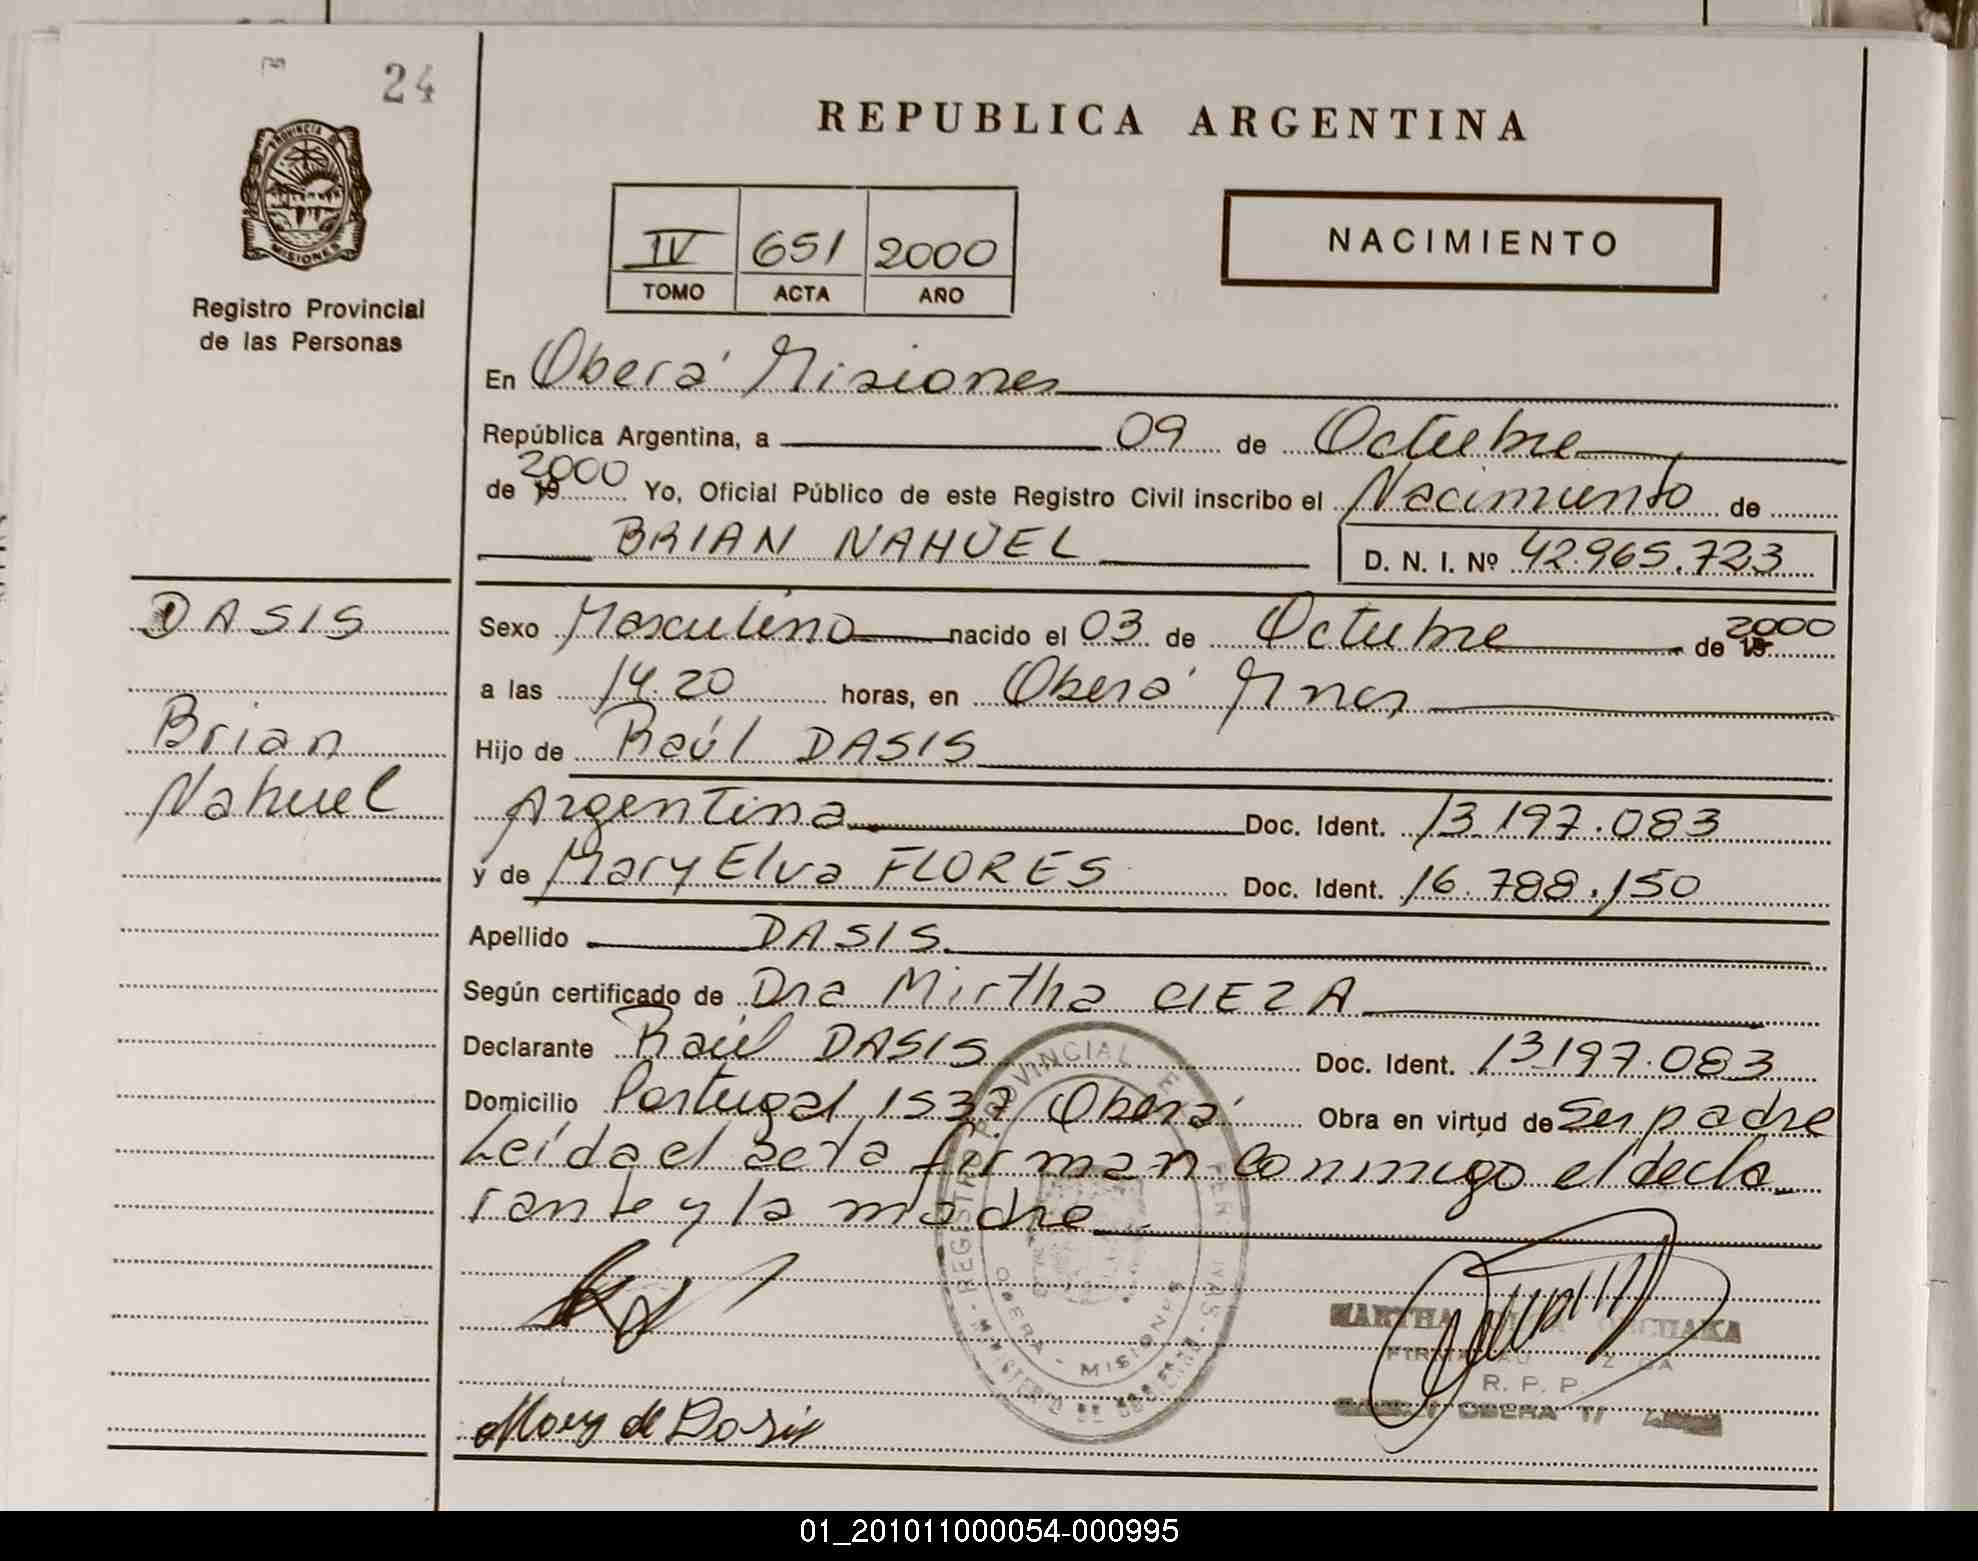 24
PROVINCIA
MISIONES
Registro Provincial
de las Personas
REPUBLICA ARGENTINA
IV 651 2000
TOMO ACTA AÑO
NACIMIENTO
En Oberá Misiones
República Argentina, a 09 de Octubre
de 19 2000 Yo, Oficial Público de este Registro Civil inscribo el Nacimiento de
BRIAN NAHUEL D. N. I. Nº 42.965.723
DASIS
Brian
Nahuel
Sexo Masculino nacido el 03 de Octubre de 19 2000
a las 14.20 horas, en Oberá Mnes
Hijo de Raúl DASIS
Argentina Doc. Ident. 13.197.083
y de Mary Elva FLORES Doc. Ident. 16.788.150
Apellido DASIS
Según certificado de Dra Mirtha CIEZA
Declarante Raúl DASIS Doc. Ident. 13197.083
Domicilio Portugal 1537 Oberá Obra en virtud de Ser padre
Leída el acta firman conmigo el decla
rante y la madre
REGISTRO PROVINCIAL
OBERA - MISIONES
MINISTERIO DE GOBIERNO
MARTHA
R. P. P.
OBERA
Mary de Dasis
01_201011000054-000995